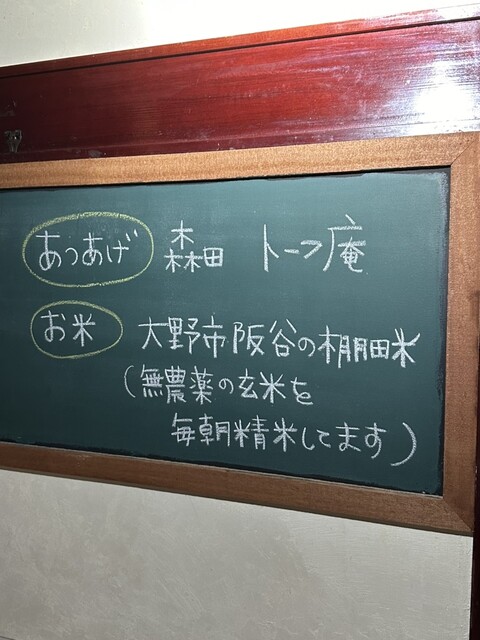 あつあげ 森田 トーフ庵
お米 大野市阪谷の棚田米
(無農薬の玄米を
毎朝精米してます)